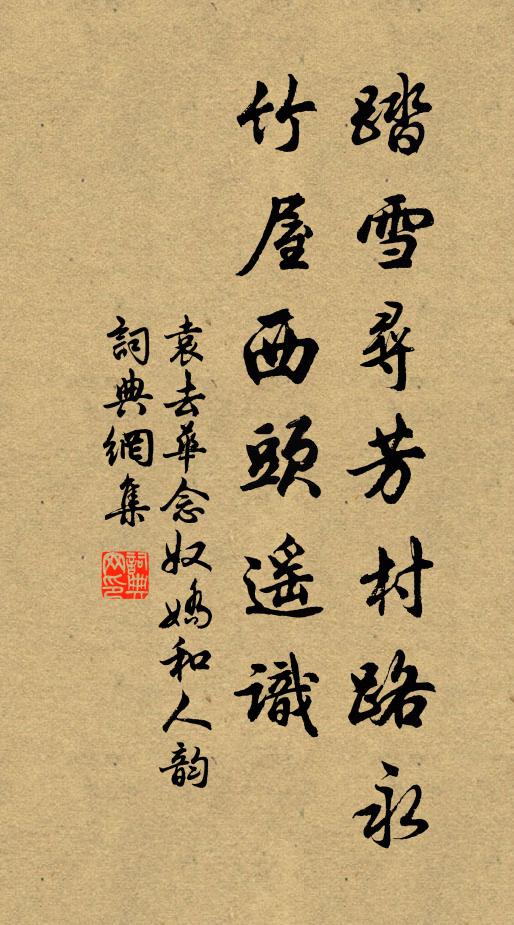 踏雪尋芳村路永
竹屋西頭遥識
袁去華念奴嬌和人韵
詞典網集
詞典網印